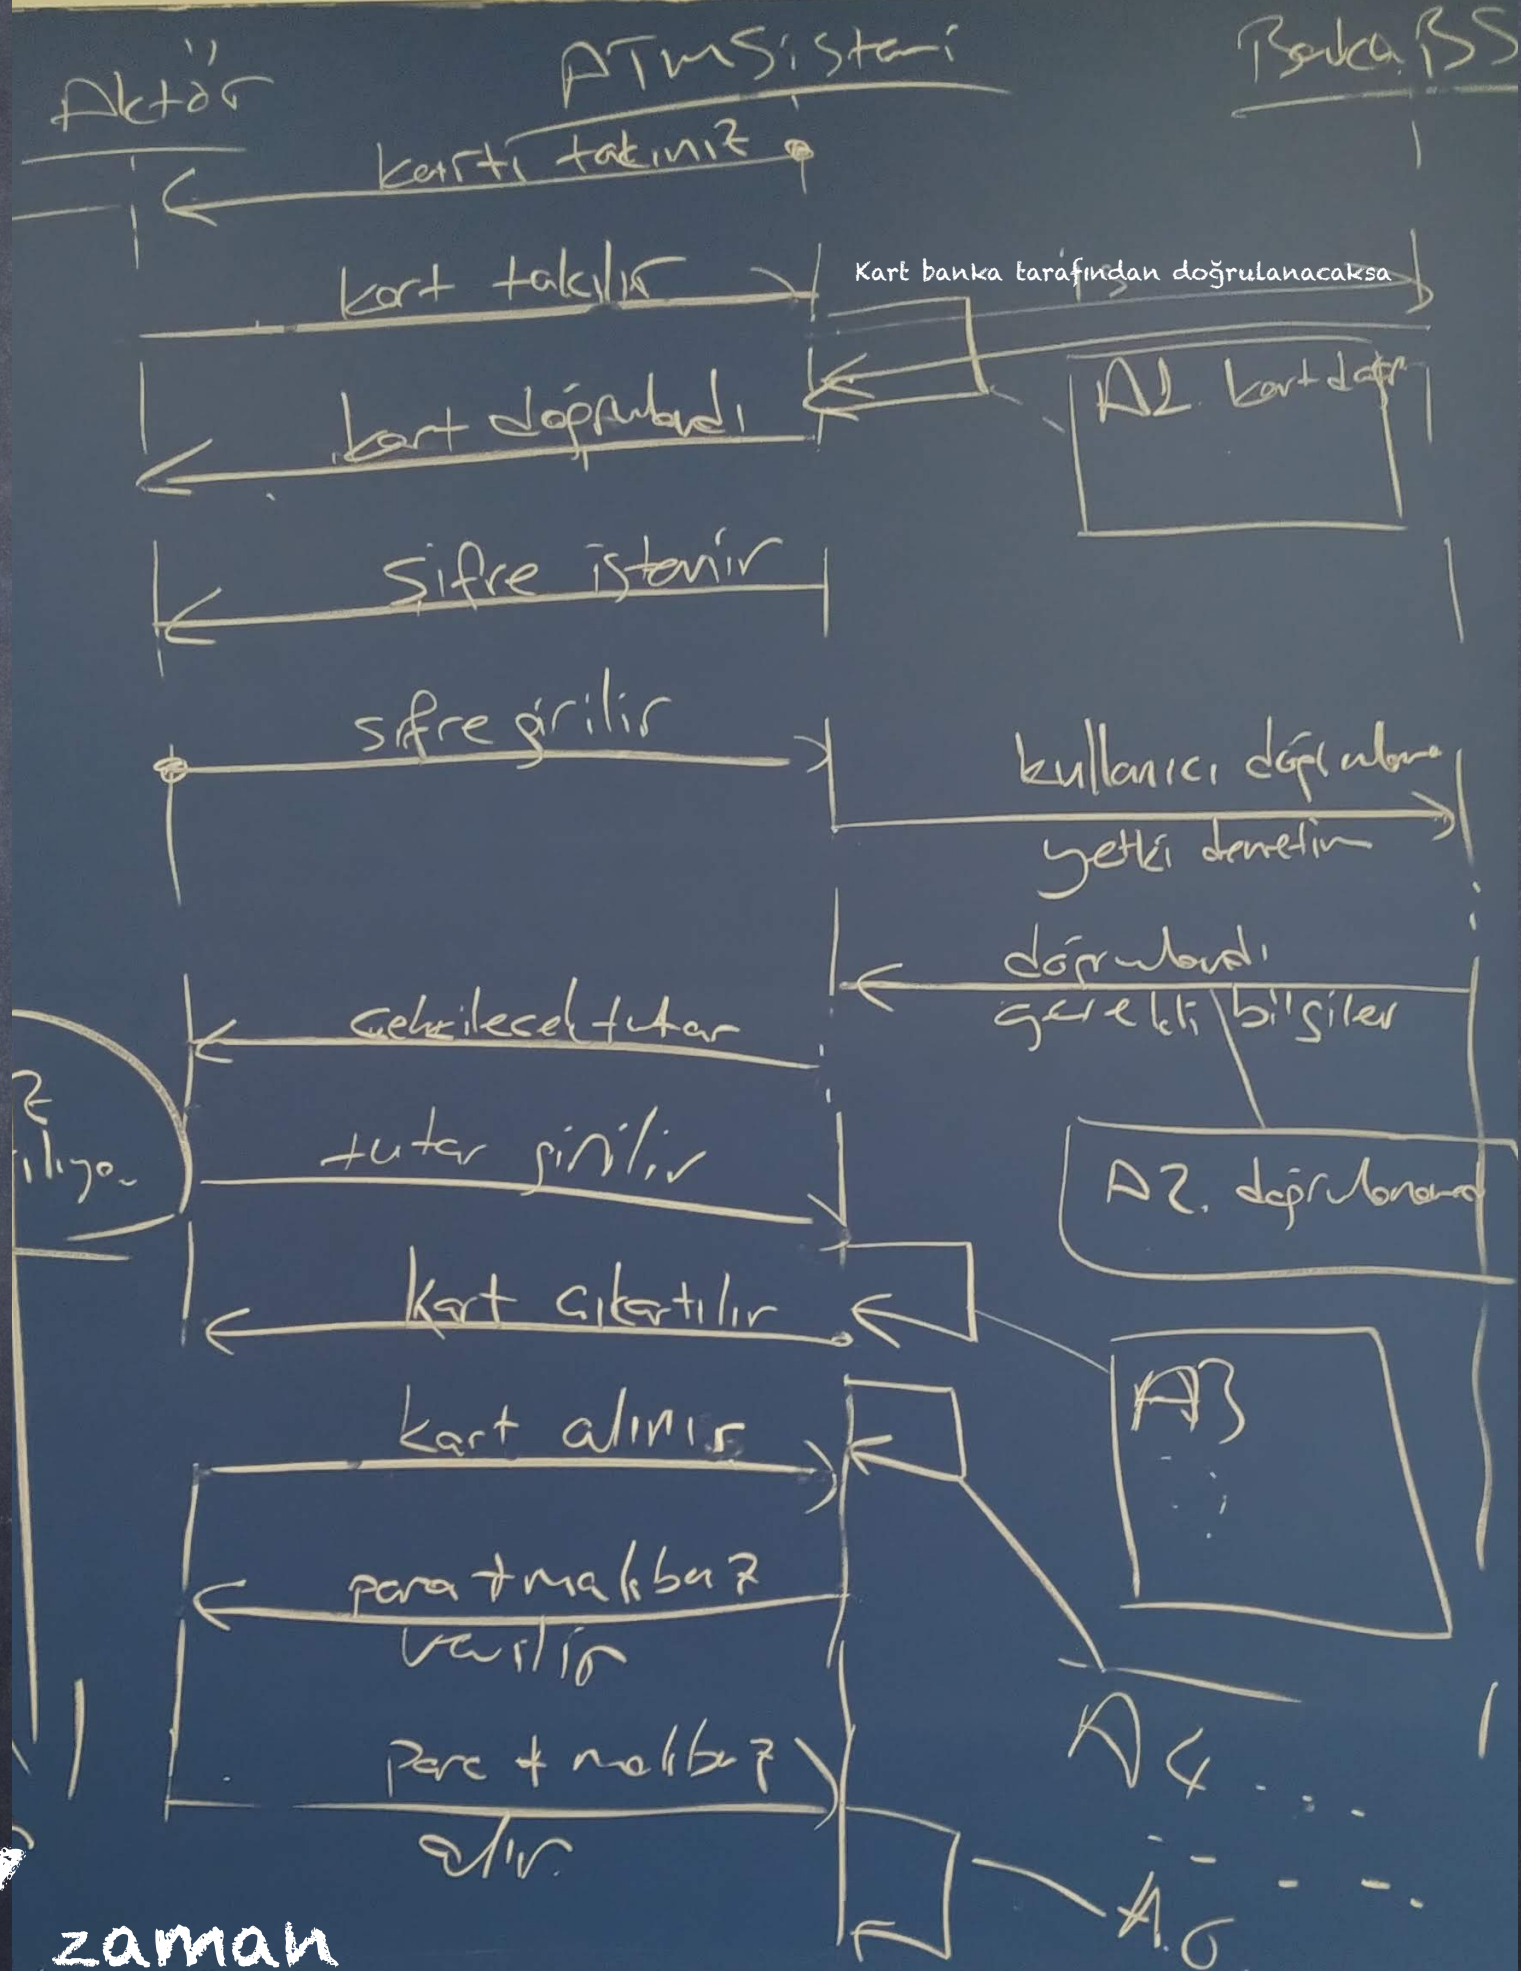 Aktör
ATM Sistemi
Banka BS
kartı takınız
kart takılır
Kart banka tarafından doğrulanacaksa
kart doğrulandı
A1. kart doğr
Şifre istenir
şifre girilir
kullanıcı doğrulama
yetki denetim
doğrulandı
gerekli bilgiler
çekilecek tutar
tutar girilir
A2. doğrulanamad
kart çıkartılır
A3
kart alınır
para + makbuz
verilir
A4...
para + makbuz
alır.
A.6
zaman